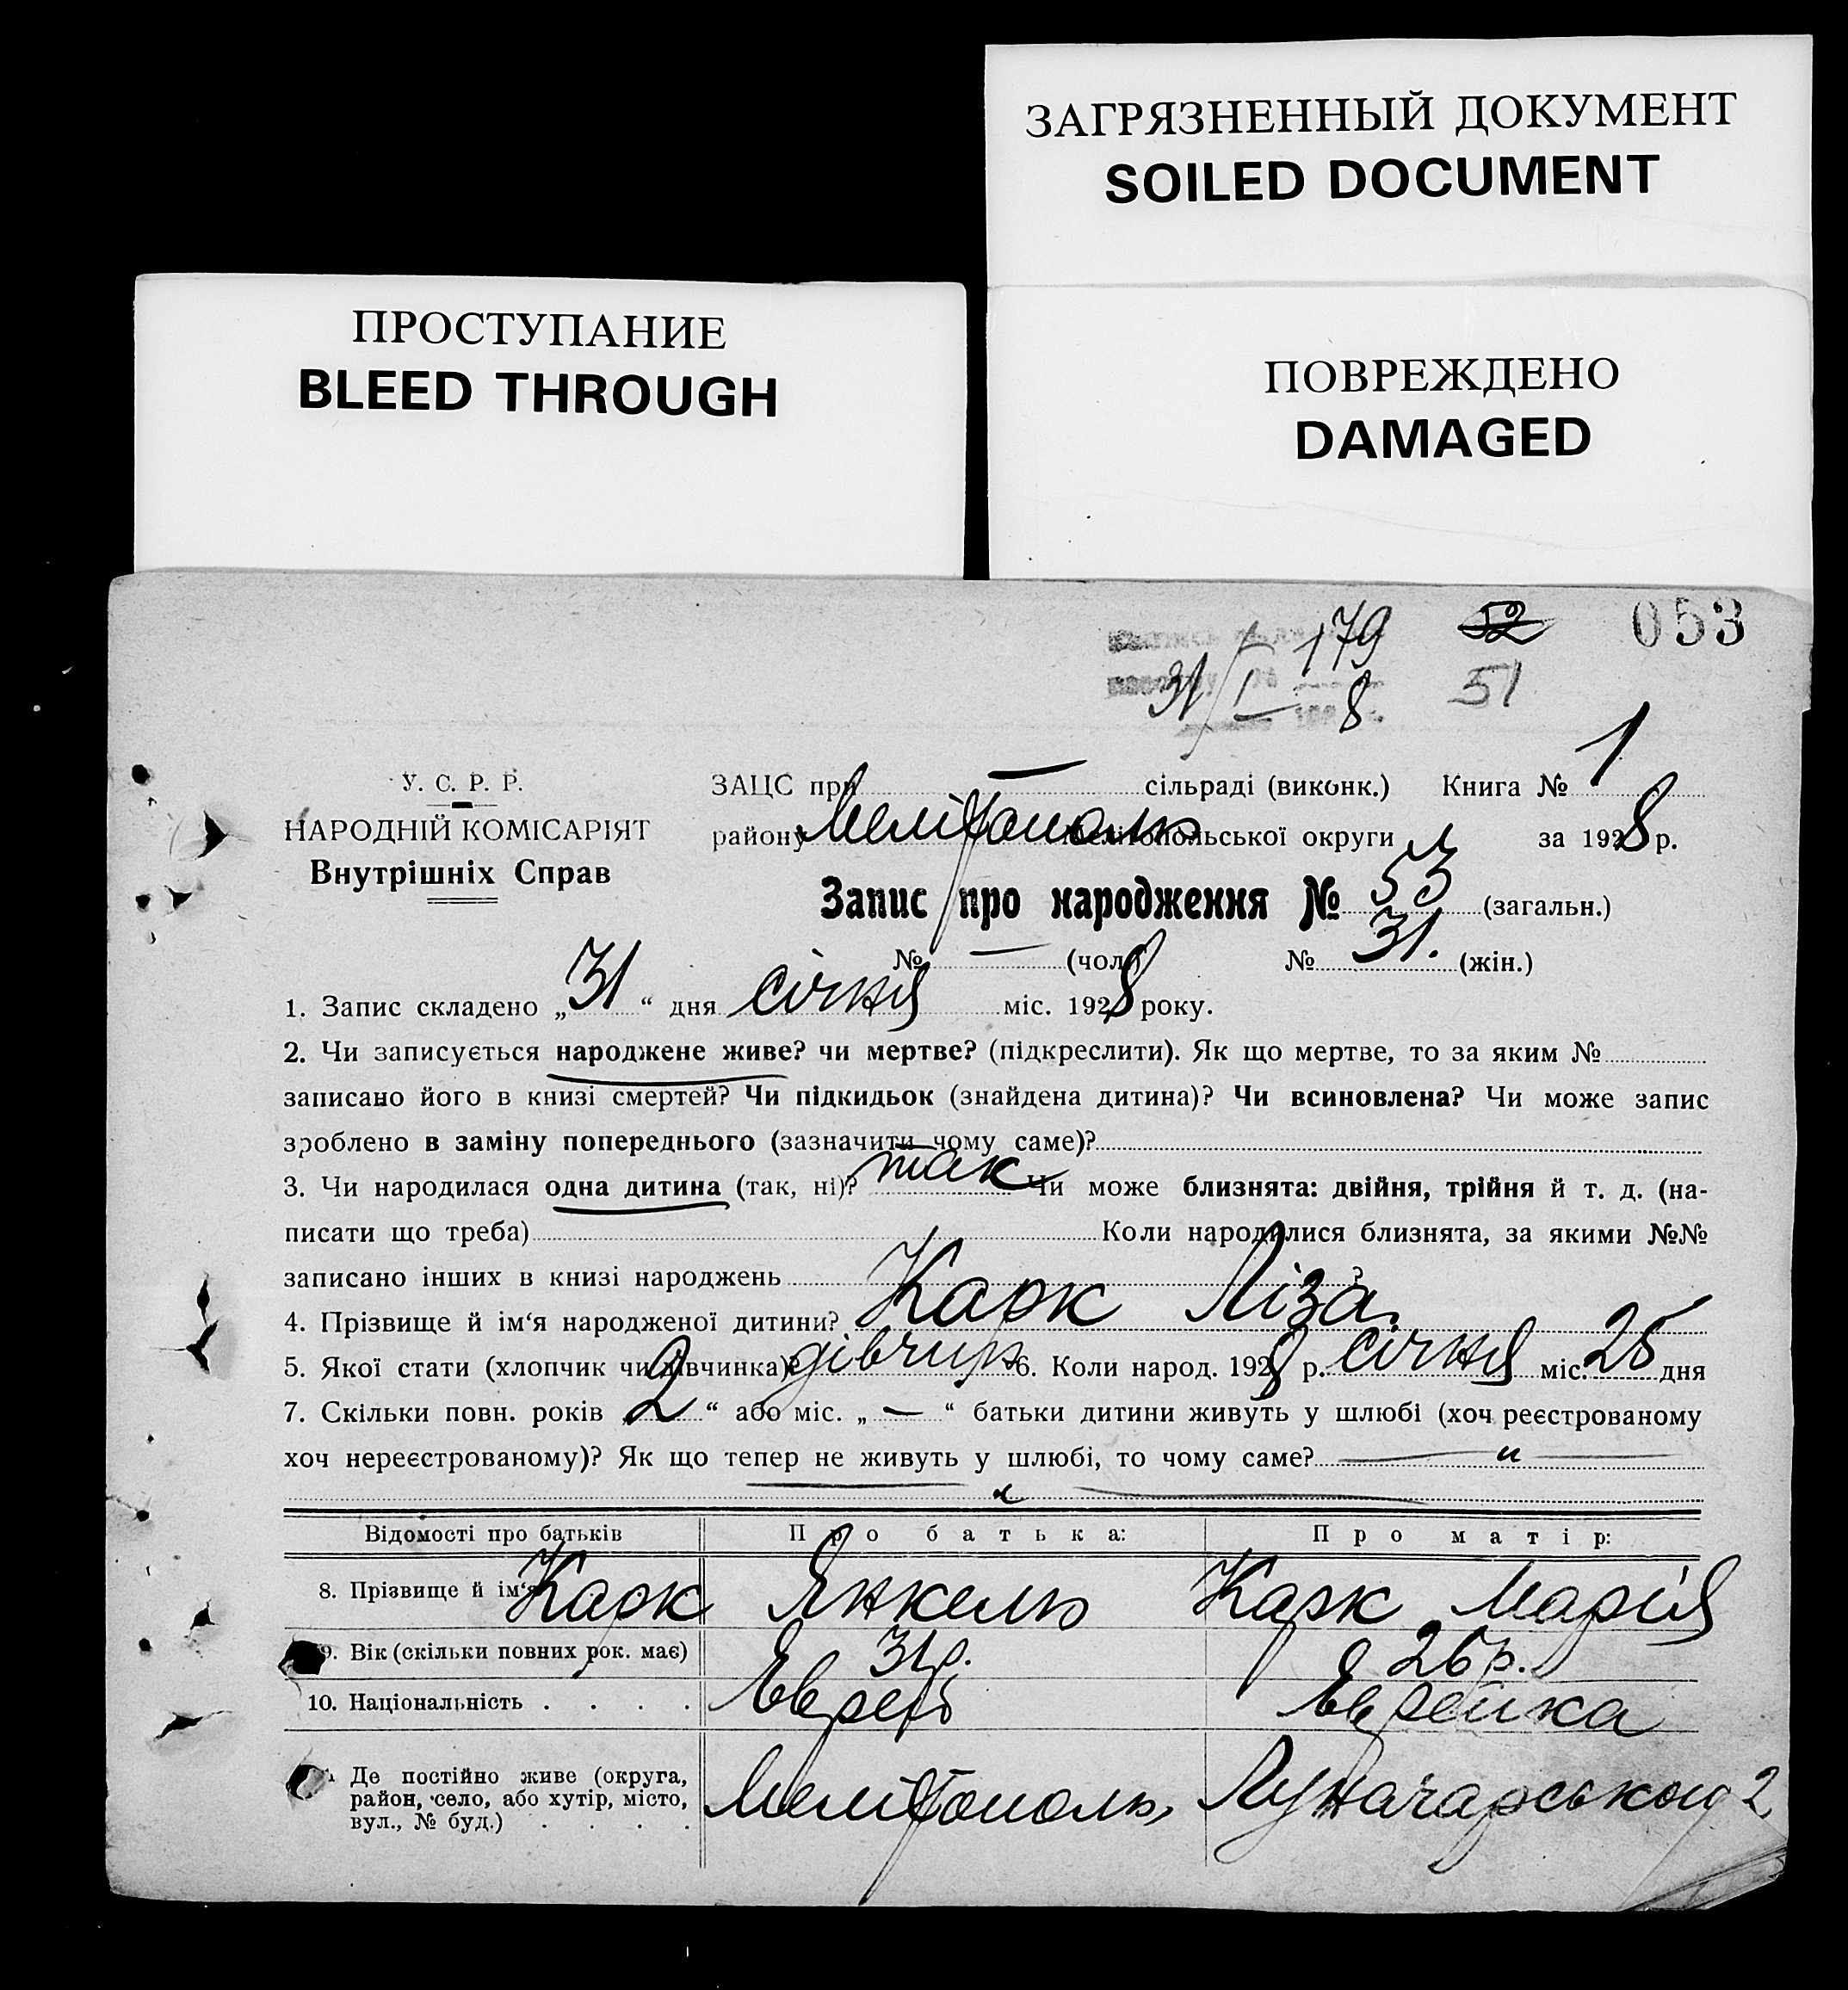 ЗАГРЯЗНЕННЫЙ ДОКУМЕНТ
SOILED DOCUMENT
ПРОСТУПАНИЕ
BLEED THROUGH
ПОВРЕЖДЕНО
DAMAGED
179 52 053
31/I 8 51
У. С. Р. Р.
НАРОДНІЙ КОМІСАРІЯТ
Внутрішніх Справ
ЗАЦС при — сільраді (виконк.) Книга № 1
району Мелітополь Мелітопольської округи за 1928 р.
Запис про народження № 53 (загальн.)
№ — (чол.) № 31. (жін.)
1. Запис складено „31“ дня січня міс. 1928 року.
2. Чи записується народжене живе? чи мертве? (підкреслити). Як що мертве, то за яким №
записано його в книзі смертей? Чи підкидьок (знайдена дитина)? Чи всиновлена? Чи може запис
зроблено в заміну попереднього (зазначити чому саме)?
3. Чи народилася одна дитина (так, ні)? так Чи може близнята: двійня, трійня й т. д. (на-
писати що треба) Коли народилися близнята, за якими №№
записано інших в книзі народжень ?
4. Прізвище й ім‘я народженої дитини? Карк Ліза.
5. Якої стати (хлопчик чи дівчинка)? 6. Коли народ. 1928 р. січня міс. 25 дня
7. Скільки повн. років „2“ або міс. „—“ батьки дитини живуть у шлюбі (хоч реєстрованому
хоч нереєстрованому)? Як що тепер не живуть у шлюбі, то чому саме? — „ —
— „ —
Відомості про батьків Про батька: Про матір:
8. Прізвище й ім‘я Карк Янкель Карк Марія
9. Вік (скільки повних рок. має) 31 р. 26 р.
10. Національність . . . . Еврей Еврейка
Де постійно живе (округа,
район, село, або хутір, місто,
вул., № буд.) . . . . Мелітополь, Луначарської 2